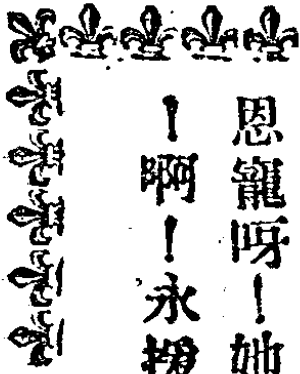 恩寵呀！她
！啊！永